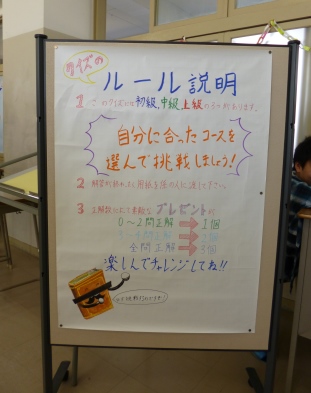 クイズの
ルール説明
1 このクイズには初級、中級、上級の3つがあります。
自分に合ったコースを
選んで挑戦しましょう!
2 解答が終わったら用紙を係の人に渡して下さい。
3 正解数によって素敵なプレゼントが
0〜2問正解 → 1個
3〜4問正解 → 2個
全問正解 → 3個
楽しんでチャレンジしてね!!